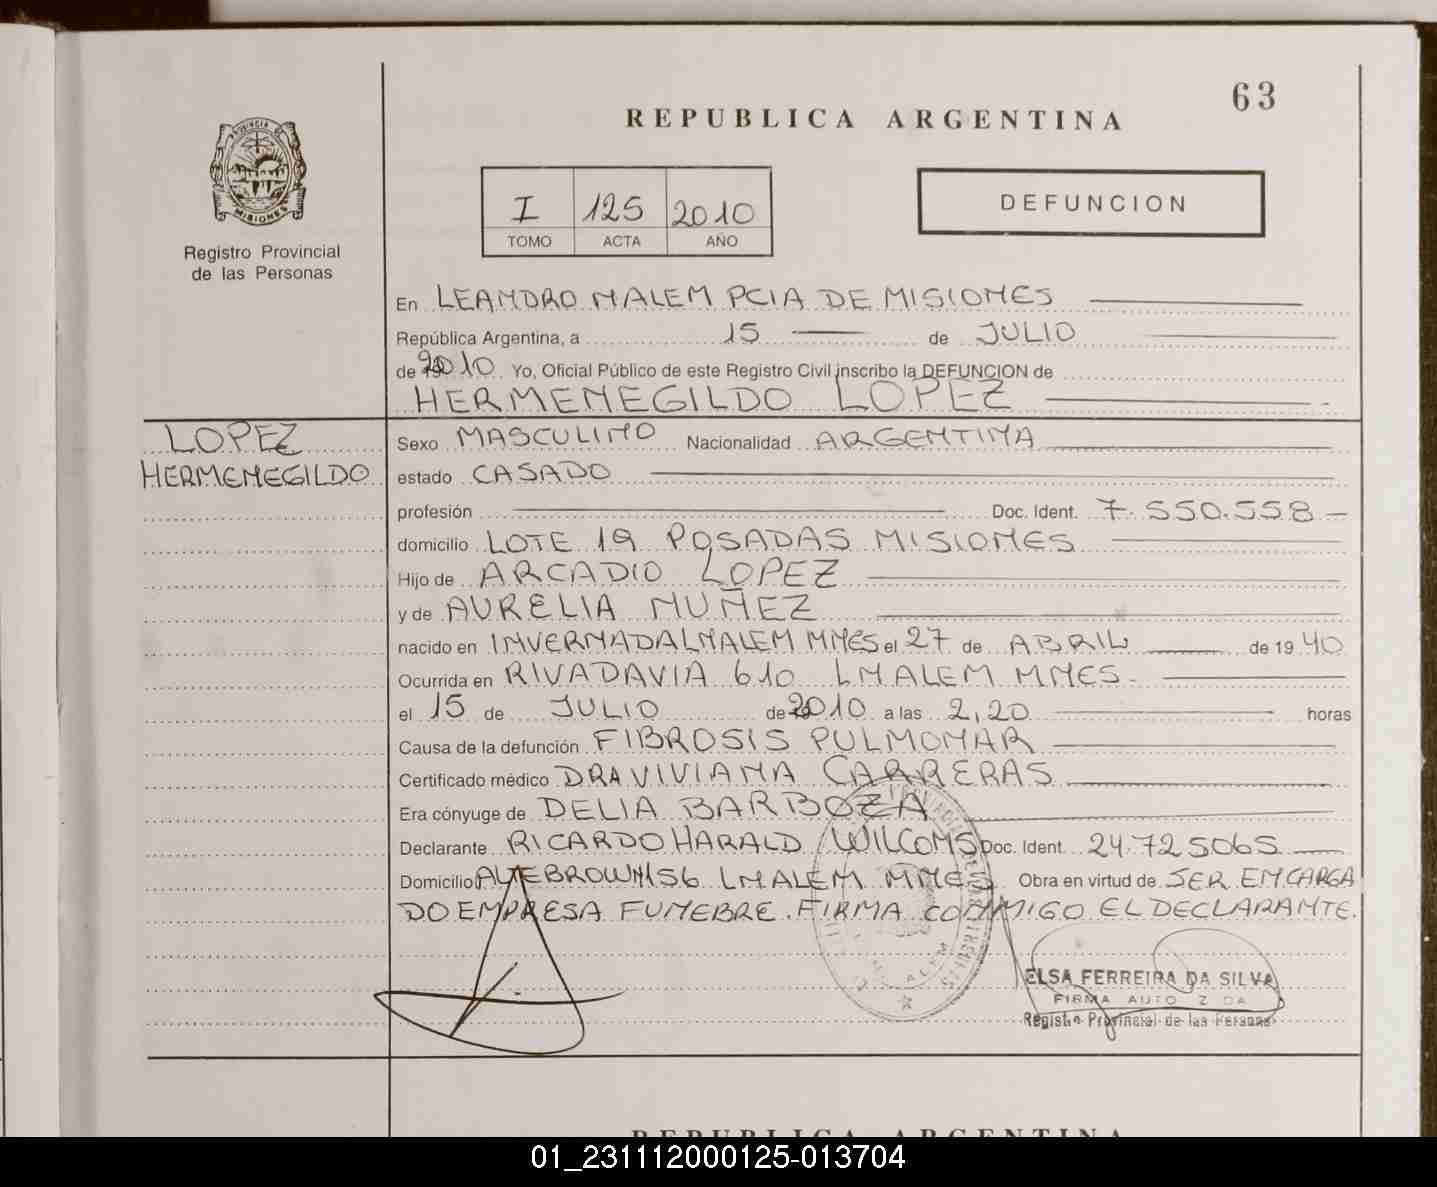 63
REPUBLICA ARGENTINA
PROVINCIA DE
MISIONES
Registro Provincial
de las Personas
I 125 2010
TOMO ACTA AÑO
DEFUNCION
En LEANDRO N ALEM PCIA DE MISIONES
República Argentina, a 15 de JULIO
de 2010 Yo, Oficial Público de este Registro Civil inscribo la DEFUNCION de
HERMENEGILDO LOPEZ
LOPEZ
HERMENEGILDO
Sexo MASCULINO Nacionalidad ARGENTINA
estado CASADO
profesión Doc. Ident. 7.550.558
domicilio LOTE 19 POSADAS MISIONES
Hijo de ARCADIO LOPEZ
y de AURELIA NUÑEZ
nacido en INVERNADA LNALEM MNES el 27 de ABRIL de 1940
Ocurrida en RIVADAVIA 610 LNALEM MNES.
el 15 de JULIO de 2010 a las 2,20 horas
Causa de la defunción FIBROSIS PULMONAR
Certificado médico DRA VIVIANA CARRERAS
Era cónyuge de DELIA BARBOZA
Declarante RICARDO HARALD WILCOMS Doc. Ident. 24.725065
Domicilio ALTE BROWN 156 LNALEM MNES Obra en virtud de SER ENCARGA
DO EMPRESA FUNEBRE. FIRMA CONMIGO EL DECLARANTE.
ELSA FERREIRA DA SILVA
FIRMA AUTO Z DA
Registro Provincial de las Personas
REPUBLICA ARGENTINA
01_231112000125-013704